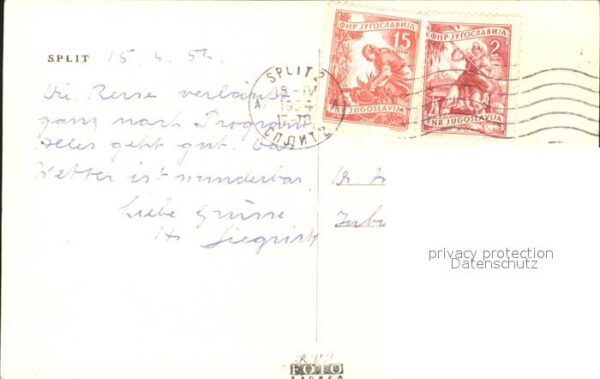 SPLIT 15. 4. 54.
Die Reise verläuft
ganz nach Programm
alles geht gut. Das
Wetter ist wunderbar.
Liebe Grüsse
H. Siegrist
ФНР ЈУГОСЛАВИЈА
15
FNR JUGOSLAVIJA
ФНР ЈУГОСЛАВИЈА
2
DIN
FNR JUGOSLAVIJA
SPLIT 2
1954
СПЛИТ 2
privacy protection
Datenschutz
FOTO